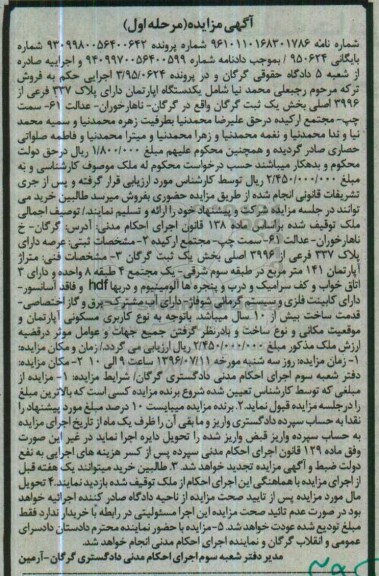 آگهی مزایده(مرحله اول)
شماره نامه ۹۶۱۰۱۱۰۱۶۸۳۰۱۷۸۶ شماره پرونده ۹۳۰۹۹۸۰۰۵۶۴۰۰۶۴۲ شماره
بایگانی ۹۵۰۶۲۴ / بموجب دادنامه شماره ۹۴۰۹۹۷۰۰۵۶۴۰۰۵۹۹ و اجراییه صادره
از شعبه ۵ دادگاه حقوقی گرگان و در پرونده ۳/۹۵/۰۶۲۴ اجرایی حکم به فروش
ترکه مرحوم رجبعلی محمد نیا شامل یکدستگاه اپارتمان دارای پلاک ۳۳۷ فرعی از
۳۹۹۶ اصلی بخش یک ثبت گرگان واقع در گرگان- ناهارخوران- عدالت ۶۱- سمت
چپ- مجتمع ارکیده درحق علیرضا محمدنیا بطرفیت زهره محمدنیا و سمیه محمد
نیا و ندا محمدنیا و نغمه محمدنیا و زهرا محمدنیا و میترا محمدنیا و فاطمه صلواتی
حصاری صادر گردیده و همچنین محکوم علیهم مبلغ ۱/۸۰۰/۰۰۰ ریال درحق دولت
محکوم و بدهکار میباشند حسب درخواست محکوم له ملک موصوف کارشناسی و به
مبلغ ۲/۴۵۰/۰۰۰/۰۰۰ ریال توسط کارشناس مورد ارزیابی قرار گرفته و پس از جری
تشریفات قانونی انجام شده از طریق مزایده حضوری بفروش میرسد طالبین خرید می
توانند در جلسه مزایده شرکت و پیشنهاد خود را ارائه و تسلیم نمایند/ توصیف اجمالی
ملک توقیف شده براساس ماده ۱۳۸ قانون اجرای احکام مدنی: آدرس: گرگان- خ
ناهارخوران- عدالت ۶۱- سمت چپ- مجتمع ارکیده ۳- مشخصات ثبتی: عرصه دارای
پلاک ۳۳۷ فرعی از ۳۹۹۶ اصلی بخش یک ثبت گرگان ۳- مشخصات فنی: متراژ
آپارتمان ۱۴۱ متر مربع در طبقه سوم شرقی- یک مجتمع ۴ طبقه ۸ واحده و دارای ۳
اتاق خواب و کف سرامیک و درب و پنجره ها آلومینیوم و دربها hdf و فاقد آسانسور-
دارای کابینت فلزی و سیستم گرمائی شوفاژ- دارای آب مشترک- برق و گاز اختصاصی-
قدمت ساخت بیش از ۱۰ سال میباشد. باتوجه به نوع کاربری مسکونی آپارتمان و
موقعیت مکانی و نوع ساخت و بادرنظر گرفتن جمیع جهات و عوامل موثر درقضیه
ارزش ملک مذکور مبلغ ۲/۴۵۰/۰۰۰/۰۰۰ ریال ارزیابی می گردد./ زمان و مکان مزایده:
۱- زمان مزایده: روز سه شنبه مورخه ۱۳۹۶/۰۷/۱۱ ساعت ۹ الی ۱۰ ۲- مکان مزایده:
دفتر شعبه سوم اجرای احکام مدنی دادگستری گرگان/ شرایط مزایده: ۱- مزایده از
مبلغی که توسط کارشناس تعیین شده شروع برنده مزایده کسی است که بالاترین مبلغ
را درجلسه مزایده قبول نماید ۲. برنده مزایده میبایست ۱۰ درصد مبلغ مورد پیشنهاد را
نقدا به حساب سپرده دادگستری واریز و مابقی آن را ظرف یک ماه از تاریخ اجرای مزایده
به حساب سپرده واریز قبض واریز شده را تحویل دایره اجرا نماید در غیر این صورت
وفق ماده ۱۲۹ قانون اجرای احکام مدنی سپرده پس از کسر هزینه های اجرایی به نفع
دولت ضبط و آگهی مزایده تجدید خواهد شد. ۳. طالبین خرید میتوانند یک هفته قبل
از اجرای مزایده با هماهنگی این اجرای احکام از ملک توقیف شده بازدید نمایند. ۴. تحویل
مال مورد مزایده پس از تایید صحت مزایده از ناحیه دادگاه صادر کننده اجرائیه خواهد
بود در صورت عدم تائید صحت مزایده این اجرا مسئولیتی در رابطه با خریدار ندارد فقط
مبلغ تودیع شده عودت خواهد شد. ۵- مزایده با حضور نماینده محترم دادستان دادسرای
عمومی و انقلاب گرگان و نماینده اجرای احکام مدنی انجام خواهد شد.
مدیر دفتر شعبه سوم اجرای احکام مدنی دادگستری گرگان- آرمین